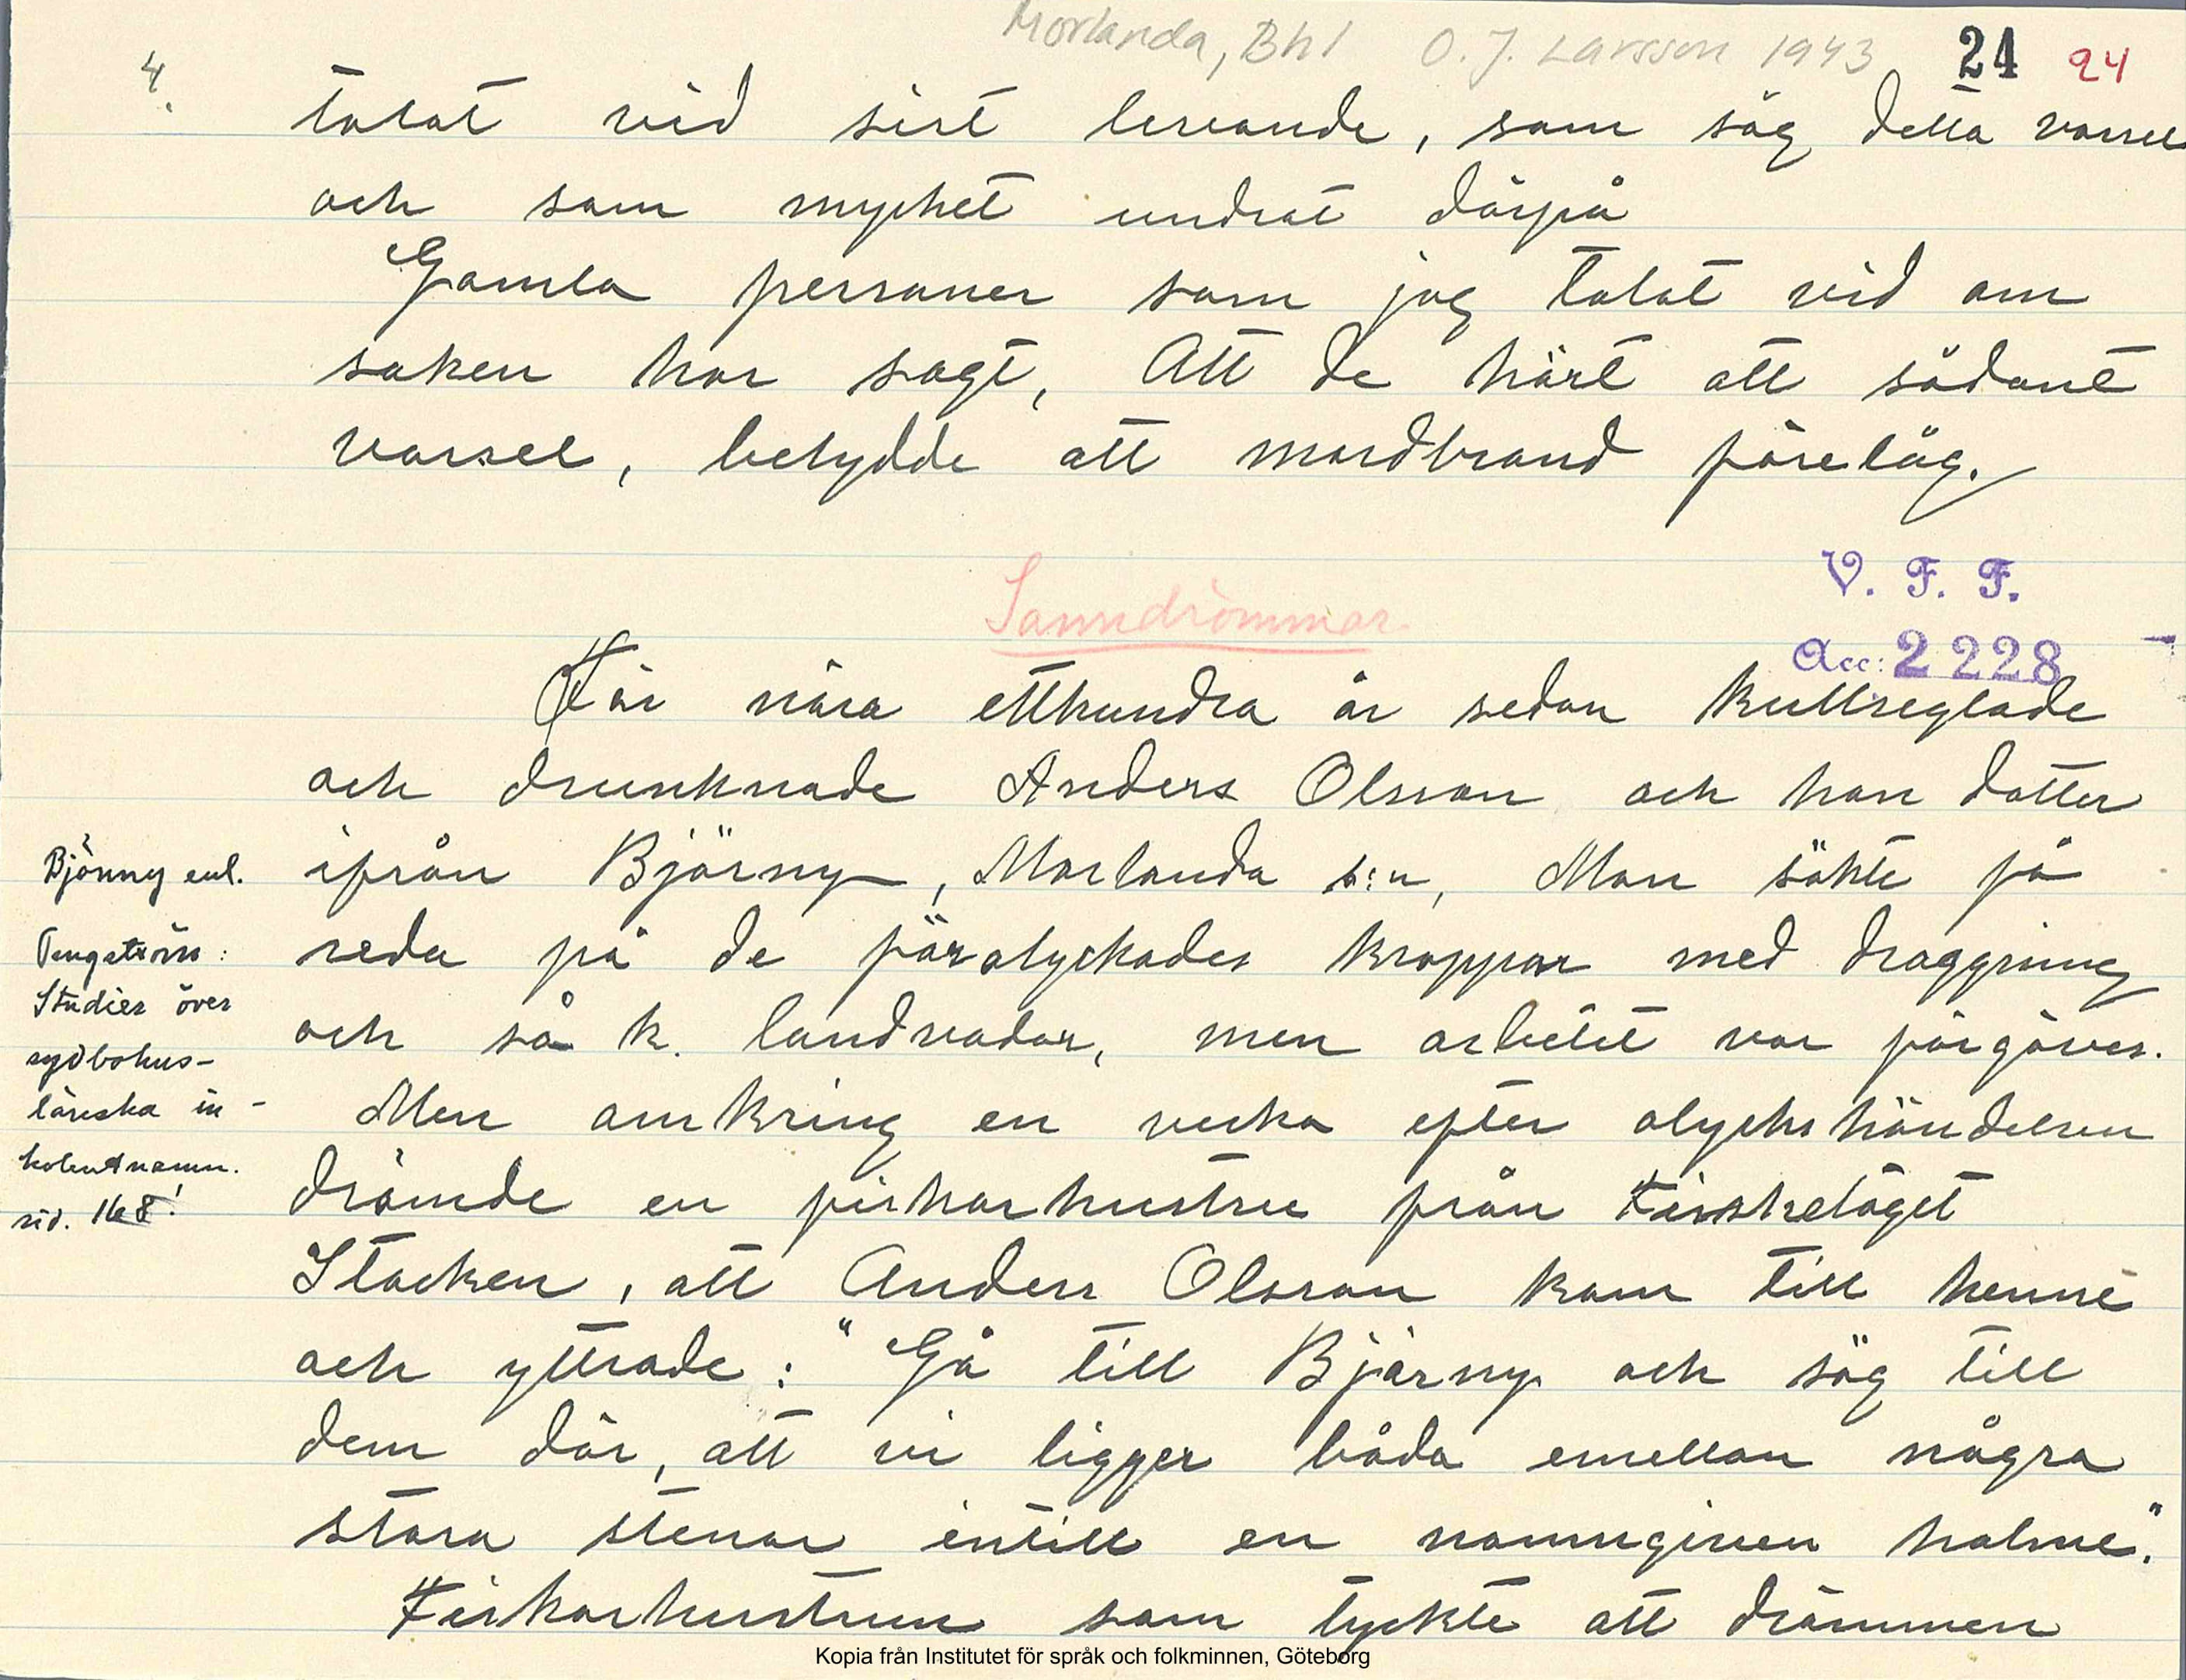 Morlanda, Bhl O. J. Larsson 1943 24 24
4.
talat vid sist levande, som såg detta varsel
och som mycket undrat därpå
Gamla personer som jag talat vid om
saken har sagt, Att de hört att sådant
varsel, betydde att mordbrand förelåg.
V. F. F.
Acc: 2228
Sanndrömmar
För nära etthundra år sedan kullseglade
och drunknade Anders Olsson och hans dotter
ifrån Björny, Morlanda s:n, Man sökte få
reda på de förolyckades kroppar med draggning
och så k. landvadar, men arbetet var förgäves.
Men omkring en vecka efter olyckshändelsen
drömde en fiskarhustru från Fiskeläget
Stocken, att Anders Olsson kom till henne
och yttrade: "Gå till Björny och säg till
dem där, att vi ligger båda emellan några
stora stenar intill en namngiven holme."
Fiskarhustrun som tyckte att drömmen
Björnny enl.
Tengström:
Studier över
sydbohus-
länska in-
kolentnamn.
sid. 168!
Kopia från Institutet för språk och folkminnen, Göteborg